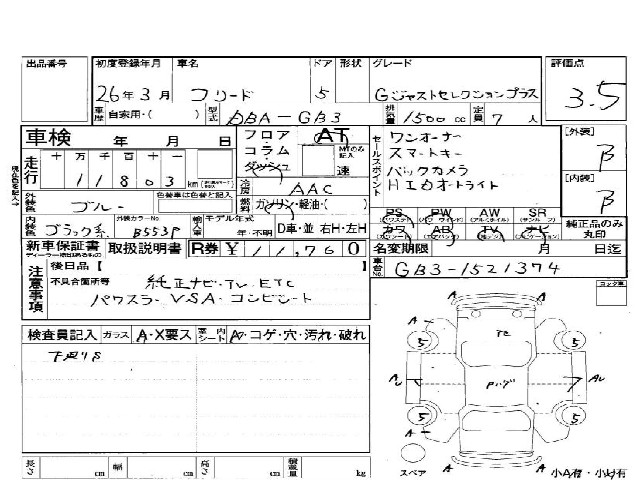 出品番号 初度登録年月 車名 ドア 形状 グレード 評価点
26年3月 フリード 5 Gジャストセレクションプラス 3.5
車歴 自家用・( ) 型式 DBA-GB3 排気量 1500 cc 定員 7 人
車検 年 月 日 フロア AT コラム ダッシュ MTのみ記入 速
走行 十 万 千 百 十 一
11803 km
冷房 AAC
外装色 ブルー 色替車は色替と記入 燃料 ガソリン・軽油・( )
内装色 ブラック系 外装カラーNo B553P 輸入車 モデル年式 年・不明 D車・並 右H・左H
セールスポイント
ワンオーナー
スマートキー
バックカメラ
HIDオートライト
[外装] B
[内装] B
PS PW AW SR
カワ AB TV ナビ
純正品のみ丸印
新車保証書 取扱説明書 R券 ¥11,760 名変期限 月 日迄
注意事項 後日品【 】
車台No. GB3-1521374
不具合箇所等 純正ナビ・TV・ETC
パワスラ VSA コンビニート
検査員記入 ガラス A・X要ス 室内シート A・コゲ・穴・汚れ・破れ
下廻りS
A A
5 5
A A
5 5
A A
スペア 小A有・小U有
長さ cm 幅 cm 高さ cm 積載量 kg